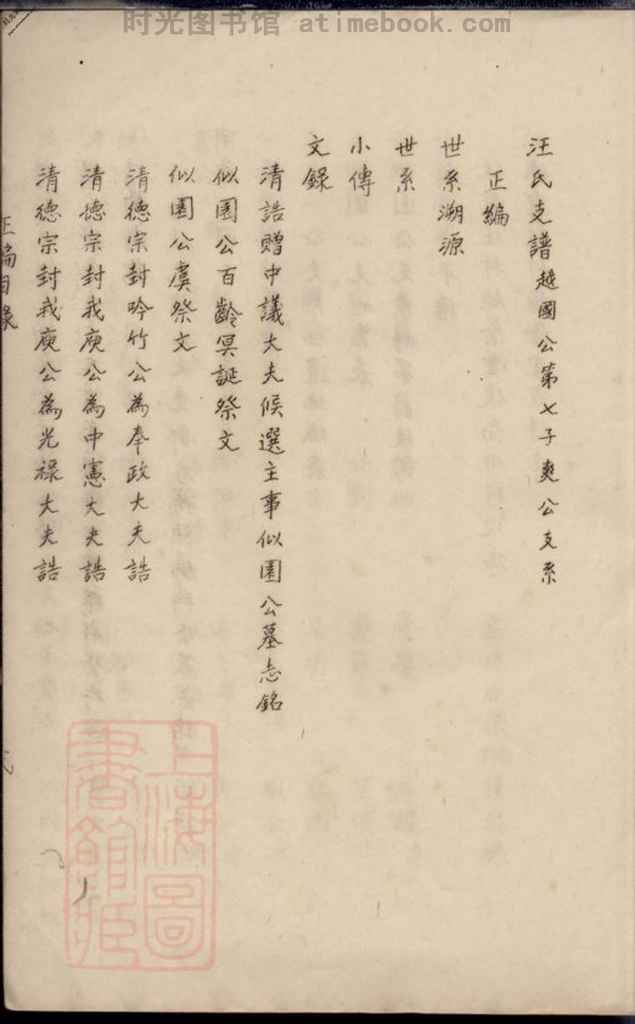 时光图书馆 atimebook.com
汪氏支譜越國公第七子爽公支系
正編
世系溯源
世系
小傳
文錄
清誥贈中議大夫候選主事似園公墓志銘
似園公百齡冥誕祭文
似園公虞祭文
清德宗封吟竹公為奉政大夫誥
清德宗封我庚公為中憲大夫誥
清德宗封我庚公為光祿大夫誥
正編目錄
上海圖書館藏